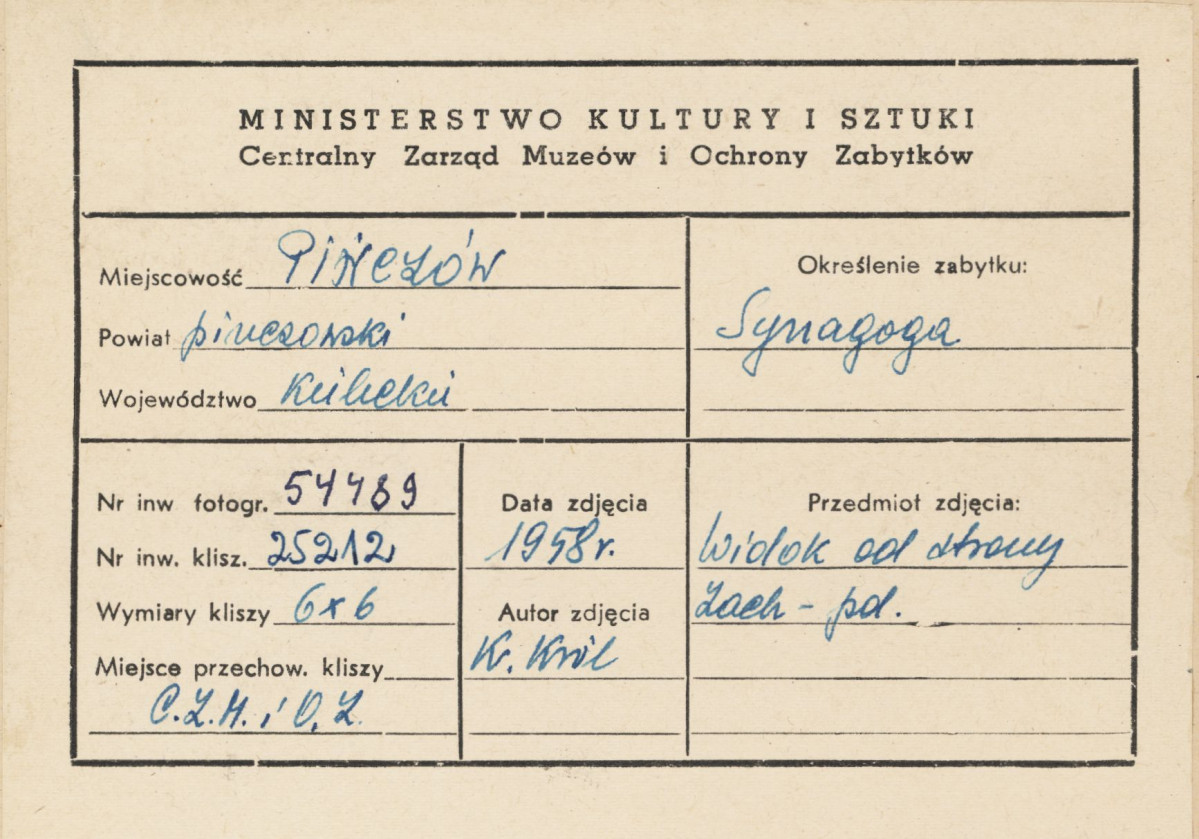 MINISTERSTWO KULTURY I SZTUKI
Centralny Zarząd Muzeów i Ochrony Zabytków
Miejscowość PIŃCZÓW
Powiat pinczowski
Województwo Kieleckie
Określenie zabytku:
Synagoga
Nr inw fotogr. 54489
Nr inw. klisz. 25212
Wymiary kliszy 6x6
Miejsce przechow. kliszy
C.Z.M. i O.Z.
Data zdjęcia
1958 r.
Autor zdjęcia
K. Król
Przedmiot zdjęcia:
Widok od strony
Zach - pd.